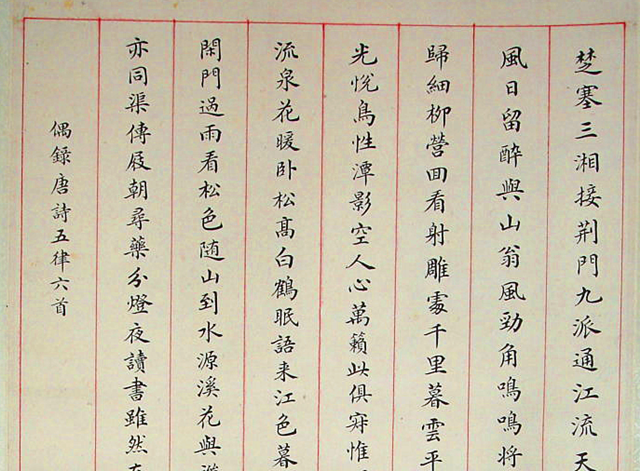 楚塞三湘接荆門九派通江流天
風日留醉與山翁風勁角鳴鳴將
歸細柳營回看射雕處千里暮雲平
光悅鳥性潭影空人心萬籟此俱寂惟
流泉花暖卧松高白鶴眠語来江色暮
閑門過雨看松色随山到水源溪花與
亦同渠傳屐朝尋藥分燈夜讀書雖然
偶錄唐詩五律六首